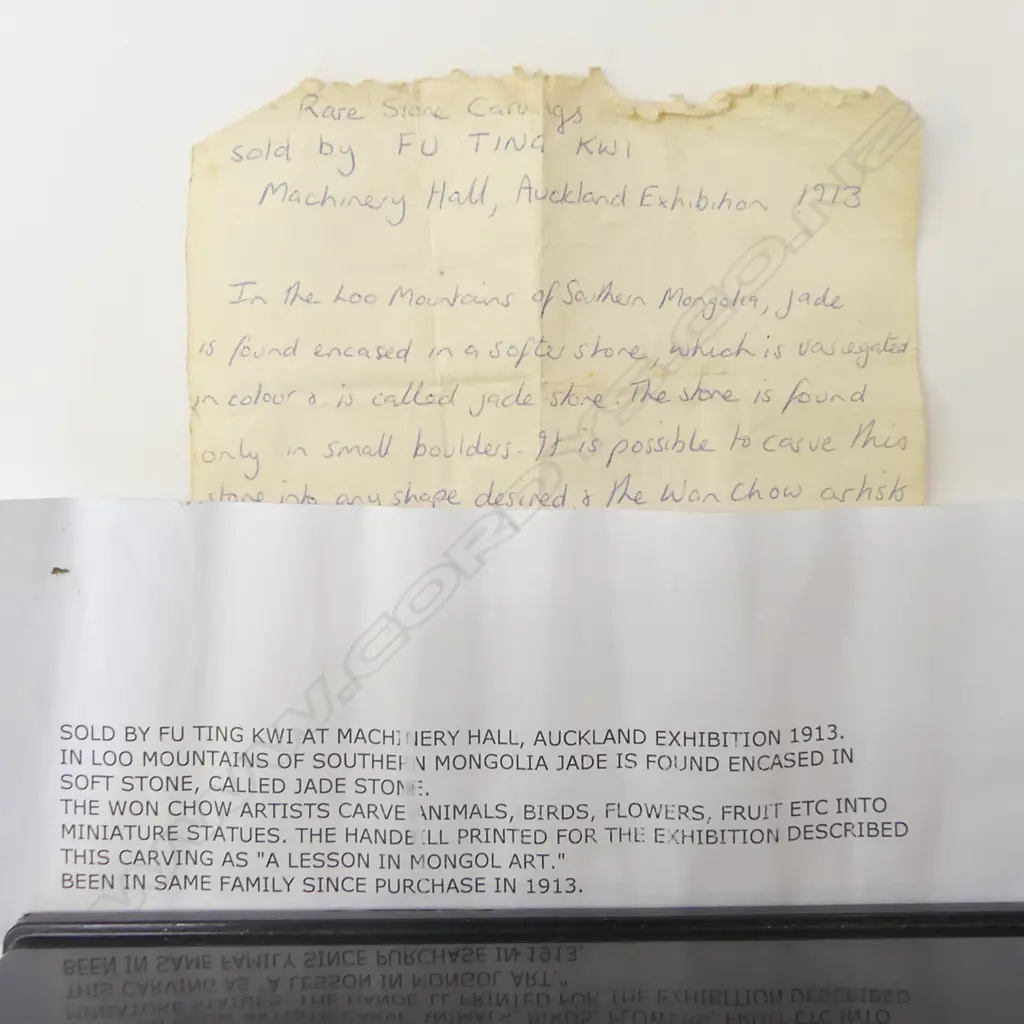 Rare Stone Carvings
sold by FU TING KWI
Machinery Hall, Auckland Exhibition 1913
In the Loo Mountains of Southern Mongolia, jade
is found encased in a softer stone, which is variegated
in colour & is called jade stone. The stone is found
only in small boulders. It is possible to carve this
stone into any shape desired & the Wan Chow artists
SOLD BY FU TING KWI AT MACHINERY HALL, AUCKLAND EXHIBITION 1913.
IN LOO MOUNTAINS OF SOUTHERN MONGOLIA JADE IS FOUND ENCASED IN
SOFT STONE, CALLED JADE STONE.
THE WON CHOW ARTISTS CARVE ANIMALS, BIRDS, FLOWERS, FRUIT ETC INTO
MINIATURE STATUES. THE HANDBILL PRINTED FOR THE EXHIBITION DESCRIBED
THIS CARVING AS "A LESSON IN MONGOL ART."
BEEN IN SAME FAMILY SINCE PURCHASE IN 1913.
WWW.CORDYS.CO.NZ